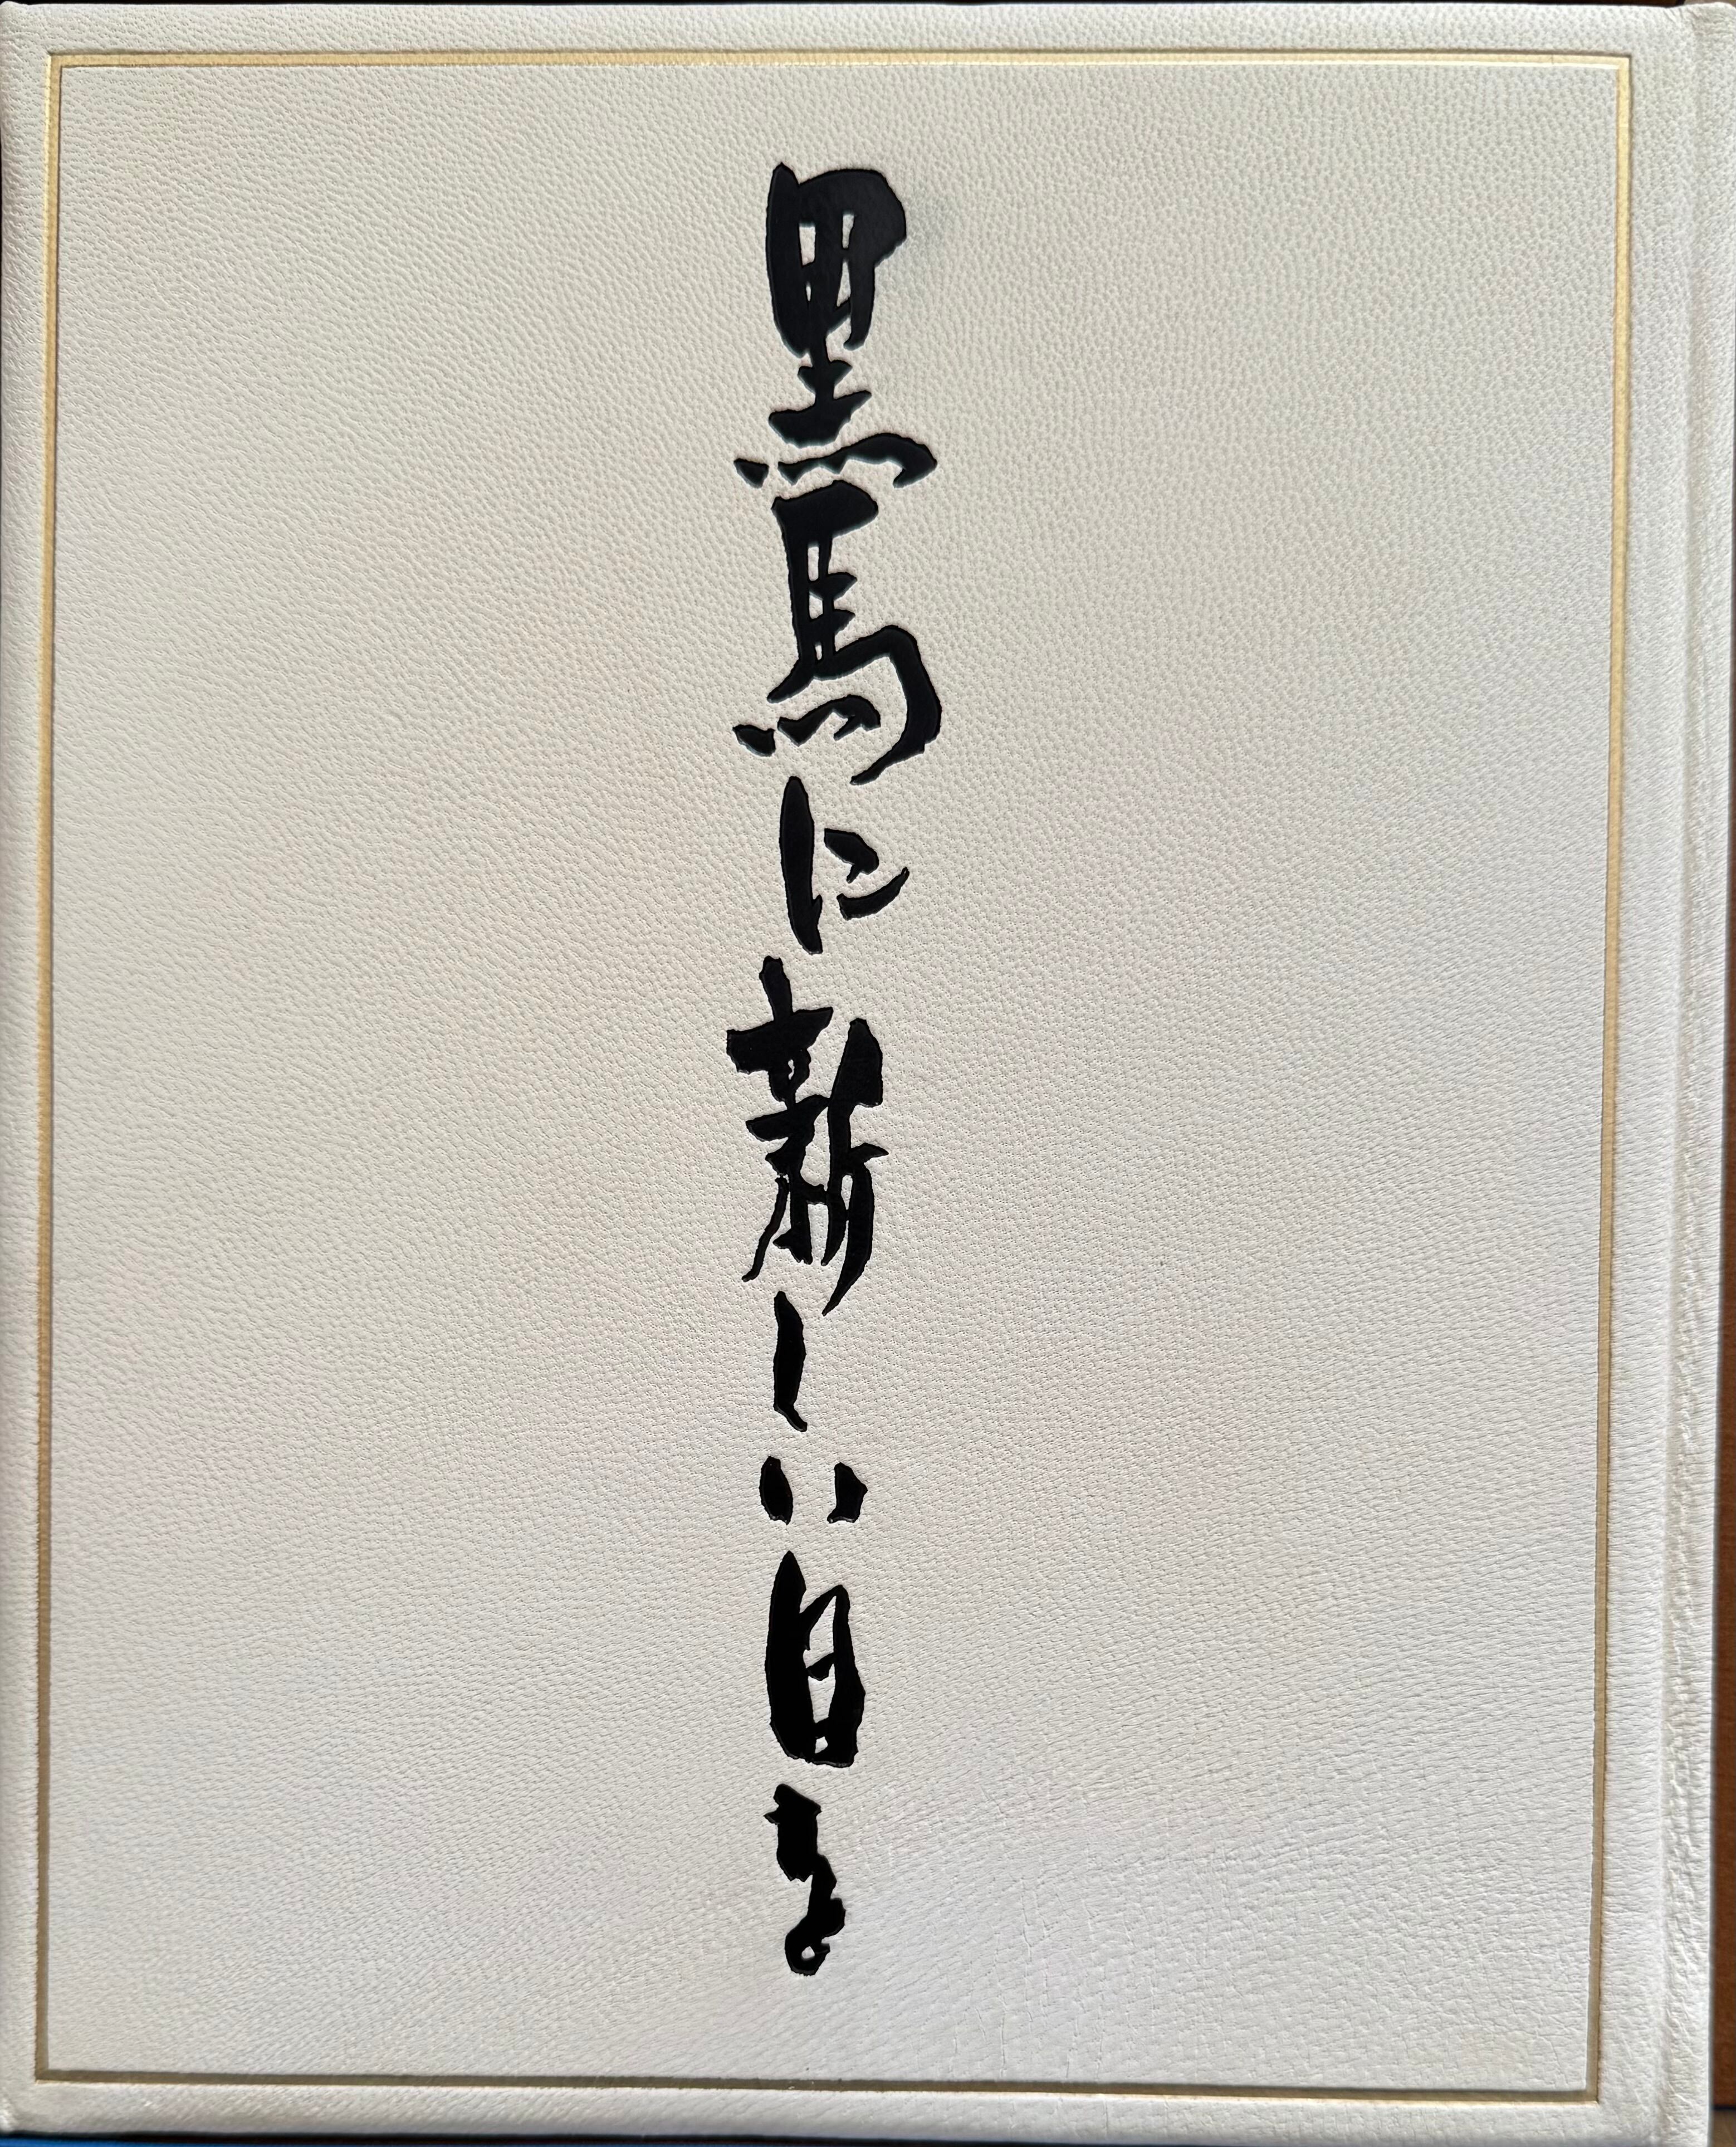 黒馬に新しい目を